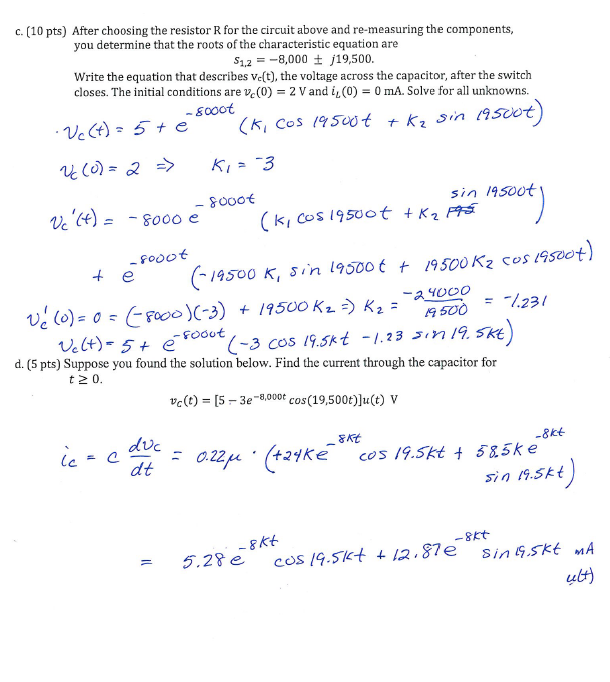 c. (10 pts) After choosing the resistor R for the circuit above and re-measuring the components,
you determine that the roots of the characteristic equation are
S₁,₂ = −8,000 ± j19,500.
Write the equation that describes vc(t), the voltage across the capacitor, after the switch
closes. The initial conditions are vc(0) = 2 V and iL(0) = 0 mA. Solve for all unknowns.
· Vc(t) = 5 + e^-8000t (K₁ cos 19500t + K₂ sin 19500t)
Vc(0) = 2 ⇒ K₁ = -3
Vc'(t) = -8000 e^-8000t (K₁ cos 19500t + K₂ sin 19500t)
+ e^-8000t (-19500 K₁ sin 19500t + 19500 K₂ cos 19500t)
Vc'(0) = 0 = (-8000)(-3) + 19500 K₂ ⇒ K₂ = -24000/19500 = -1.231
Vc(t) = 5 + e^-8000t (-3 cos 19.5kt - 1.23 sin 19.5kt)
d. (5 pts) Suppose you found the solution below. Find the current through the capacitor for
t ≥ 0.
vc(t) = [5 − 3e^−8,000t cos(19,500t)]u(t) V
ic = c dvc/dt = 0.22μ · (+24Ke^-8kt cos 19.5kt + 58.5k e^-8kt
sin 19.5kt)
= 5.28 e^-8kt cos 19.5kt + 12.87e^-8kt sin 19.5kt mA
u(t)